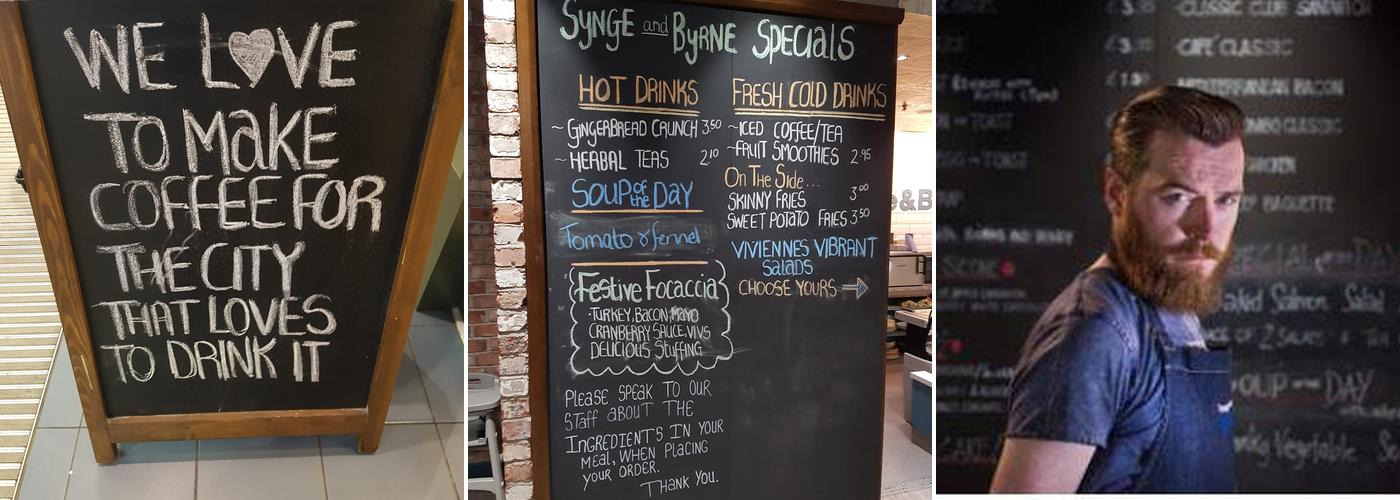 WE LOVE
TO MAKE
COFFEE FOR
THE CITY
THAT LOVES
TO DRINK IT
SYNGE and BYRNE SPECIALS
HOT DRINKS
~ GINGERBREAD CRUNCH 3.50
~ HERBAL TEAS 2.10
SOUP of the DAY
Tomato & fennel
Festive Focaccia
-TURKEY, BACON, MAYO
CRANBERRY SAUCE, VIVS
DELICIOUS STUFFING
PLEASE SPEAK TO OUR
STAFF ABOUT THE
INGREDIENTS IN YOUR
MEAL, WHEN PLACING
YOUR ORDER.
THANK YOU.
FRESH COLD DRINKS
~ICED COFFEE/TEA
~FRUIT SMOOTHIES 2.95
ON THE SIDE...
SKINNY FRIES 3.00
SWEET POTATO FRIES 3.50
VIVIENNES VIBRANT
SALADS
CHOOSE YOURS
&B
CLASSIC CLUB SANDWICH
CAFE CLASSIC
MEDITERRANEAN BACON
CLASSIC
BAGUETTE
SPECIAL DAY
Salmon Salad
OF 2
OUP OF THE DAY
Vegetable